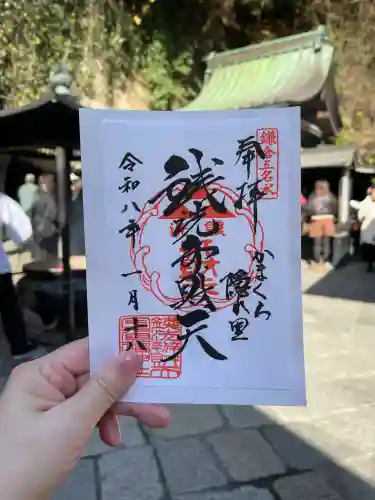 奉拝
鎌倉五名水
かまくら
隠れ里
銭洗弁財天
令和八年
一月十八